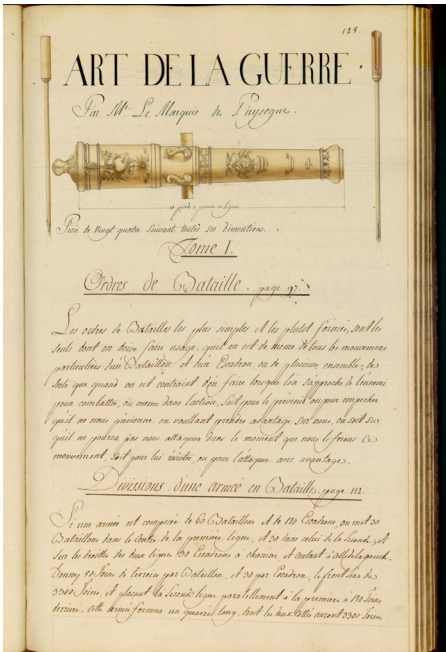 125
ART DE LA GUERRE.
Par Mr. Le Marquis de Puysegur.
10 pieds
Piece de Vingt quatre Suivant toutes ses dimentions.
Tome I.
Ordres de Bataille. page 97.
Les ordres de Batailles les plus simples et les plutot formés, sont les
seuls dont on doive faire usage, qu'il en est de meme de tous les mouvemens
particuliers d'un Bataillon et d'un Escadron, ou de plusieurs ensemble, de
sorte que quand on est contraint d'en faire lorsque l'on s'approche de l'ennemi
pour combattre, ou meme dans l'action, soit pour le prevenir ou pour empecher
qu'il ne nous previenne en voulant prendre avantage sur nous, on soit sur
qu'il ne pourra pas nous attaquer dans le moment que nous le ferons ce
mouvement, soit pour lui resister, ou pour l'attaquer avec avantage.
Divisions d'une armée en Bataille. page 112.
Si une armée est composée de 60 Bataillons et de 120 Escadrons, on met 30
Bataillons dans le Centre de la premiere ligne, et 30 dans celui de la Seconde, et
sur les droittes des deux ligne 30 Escadrons a chacune et autant a l'aile de la gauche.
Donnez 80 Toises de terrein par Bataillon, et 30 par Escadron, le front sera de
3300 Toises, et plaçant la seconde ligne parallellement à la premiere a 150 Toises
derriere. Cette armée formera un quarré long, dont les deux côtés auront 3300 Toises,